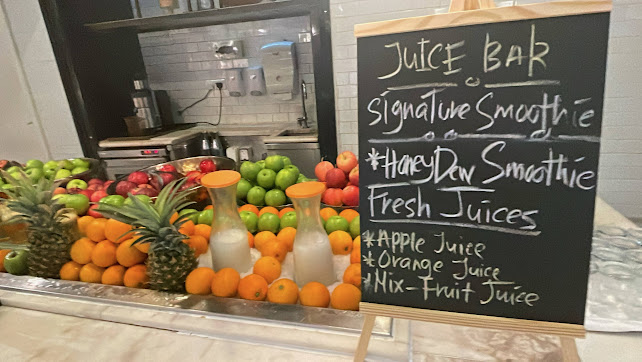 JUICE BAR
Signature Smoothie
*HoneyDew Smoothie
Fresh Juices
*Apple Juice
*Orange Juice
*Mix-Fruit Juice